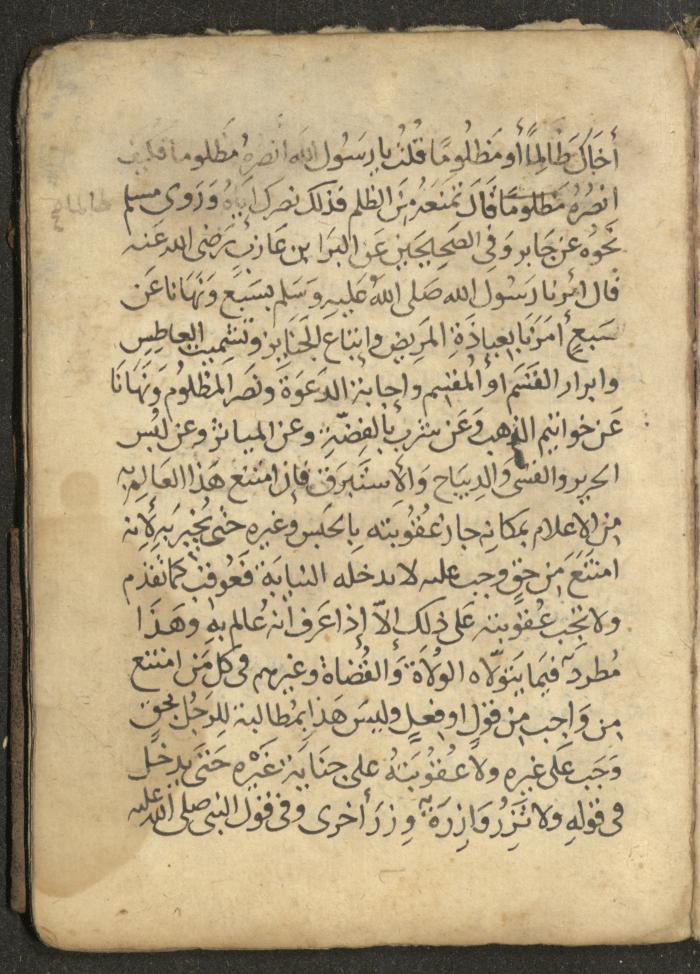 أخاك ظالمًا أو مظلومًا قُلتُ يا رسول الله أنصره مظلوما فكيف
انصُرُه مظلومًا قال تمنعه مِنَ الظلم فذلك نصرك إياه وَرَوى مسلم
ظالما
نحوُه عن جابر وفي الصحيحين عن البَرَا بن عَازب رَضي الله عَنه
قال امرنا رَسُول الله صَلى اللهُ عَليهِ وَسَلم بسَبعٍ وَنَهَانا عَن
سَبعٍ أمَرَنا بعيادَةِ المَرِيض وإتباع الجَنايز وتشميت العاطِس
وابرار القَسَم أو المُقسِم وإجابة الدَعوَة ونصَر المظلوُم وَنهَانَا
عَن خواتيم الذهب وَعَن شرب بالفِضّةِ وعن المياثر وعن لبُس
الحرير والقسّي والديبَاج وَالأستَبرَق فإن امتنع هَذا العَالِم به
مِن الإعلام بمكانِه جازت عُقُوبَته بالحَبسِ وغيرِه حَتى يُخبِرَ به لأنه
امتَنَعَ مِن حَقٍ وجب عليه لا يدخله النيَابَة فَعُوقِبَ كما تقدم
ولا تجب عُقوُبته عَلى ذلك إلاّ إذا عَرف أنه عَالم بهِ وهَذَا
مُطرد فيمَا يَتَوَلاه الولاَة وَالقُضاة وغيرهم في كل مَن امتنع
مِن وَاجب مِن قولٍ او فِعلٍ وليسَ هَذا بمُطالبة للِرَجُلِ بحَقٍ
وَجَب عَلى غيرِه ولا عُقُوبَتهُ على جِنايَةِ غَيرِه حَتى يدخل
في قولهِ ولا تَزِرُ وَازِرَة وِزرَ أخرى وفي قول النبي صلى الله عليه